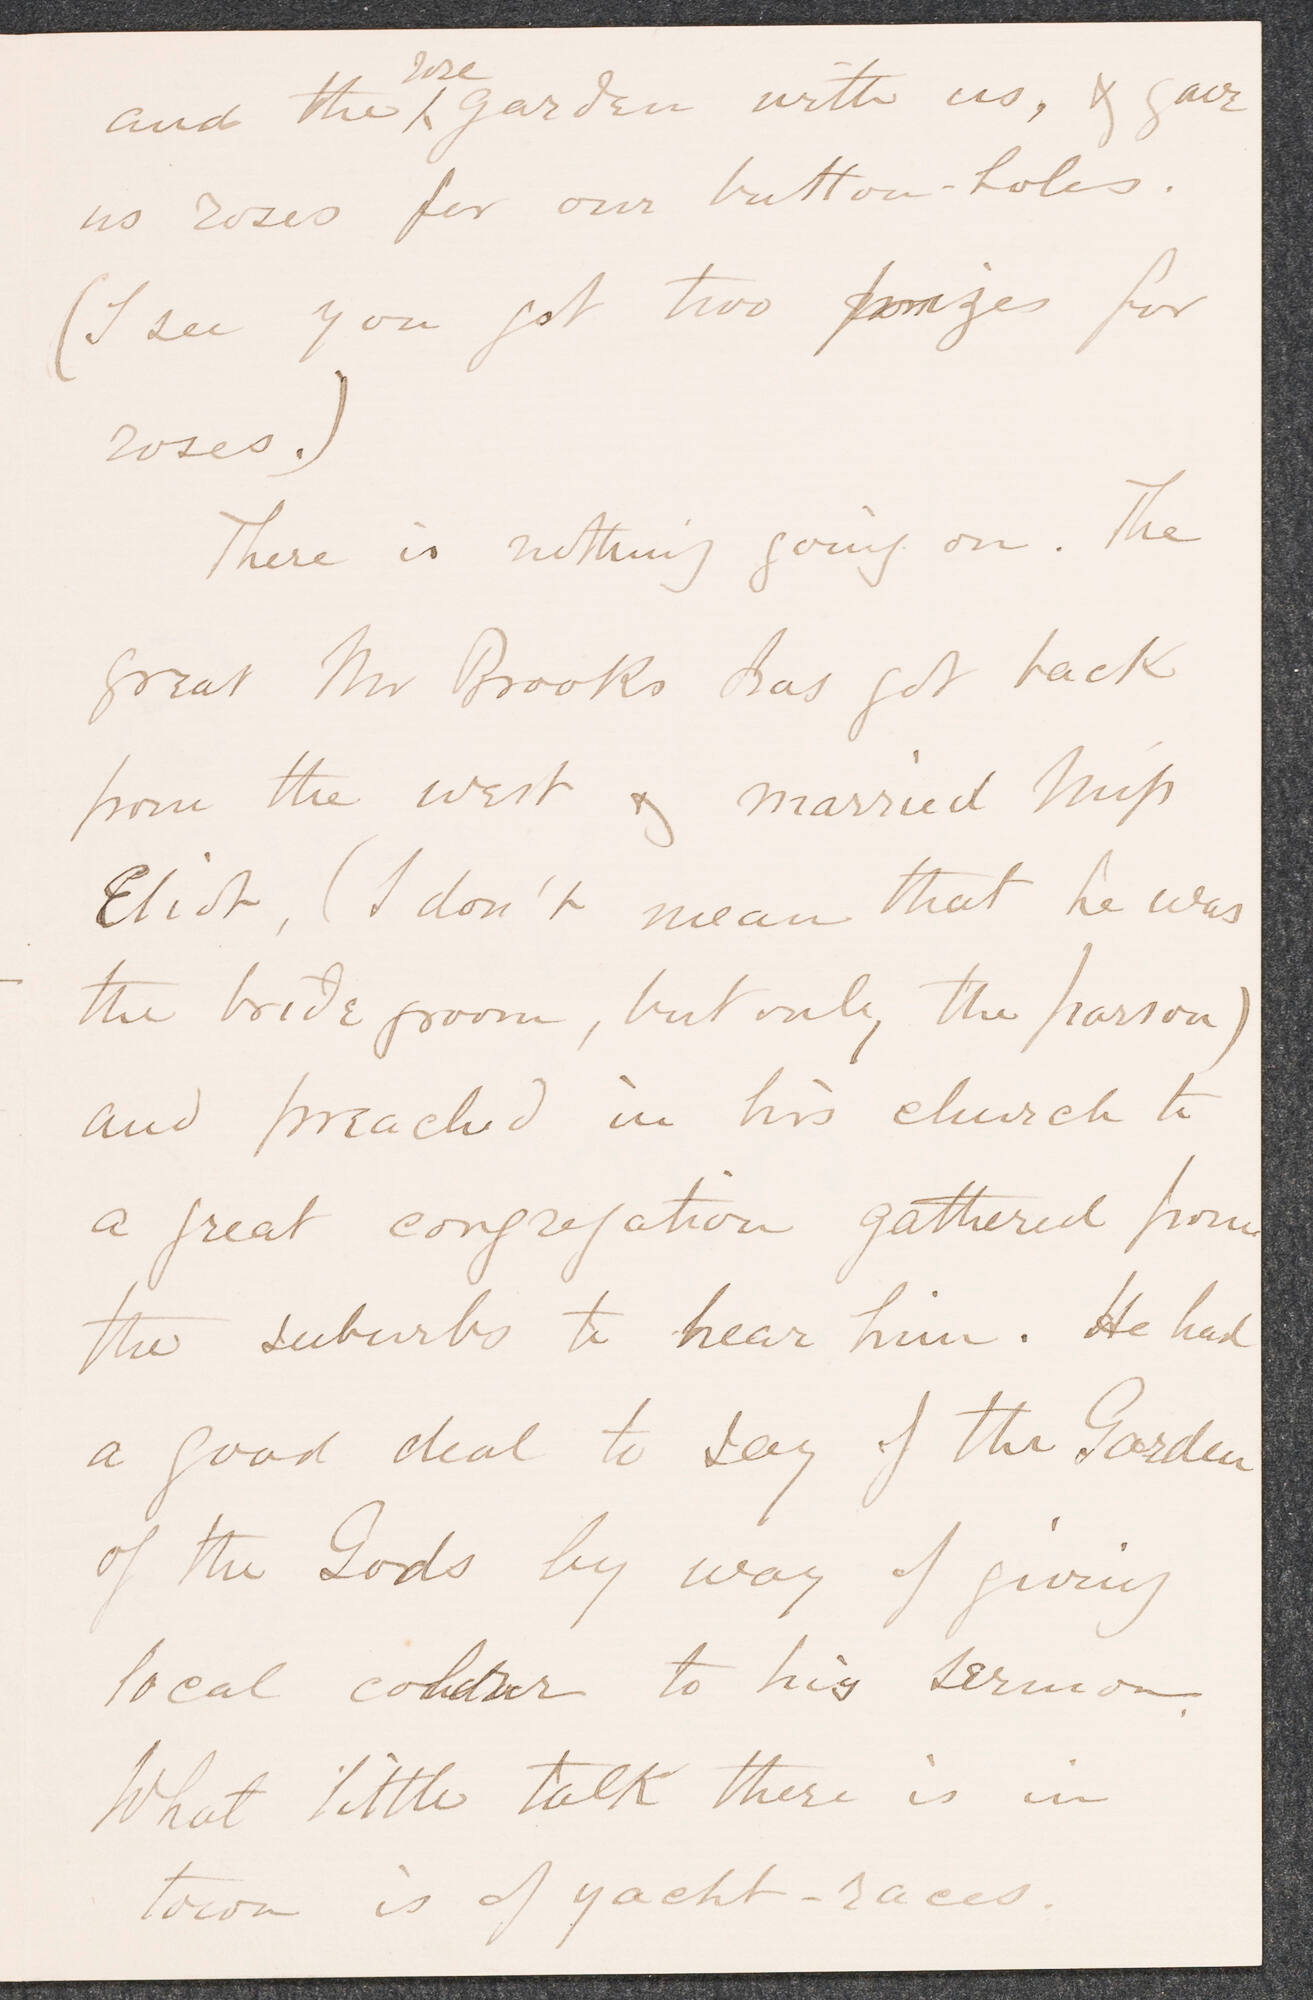 and the ^rose garden with us, & gave
us roses for our button-holes.
(I see you got two prizes for
roses.)
There is nothing going on. The
great Mr Brooks has got back
from the west & married Miss
Eliot, (I don't mean that he was
the bridegroom, but only the parson)
and preached in his church to
a great congregation gathered from
the suburbs to hear him. He had
a good deal to say of the Garden
of the Gods by way of giving
local colour to his sermon.
What little talk there is in
town is of yacht-races.